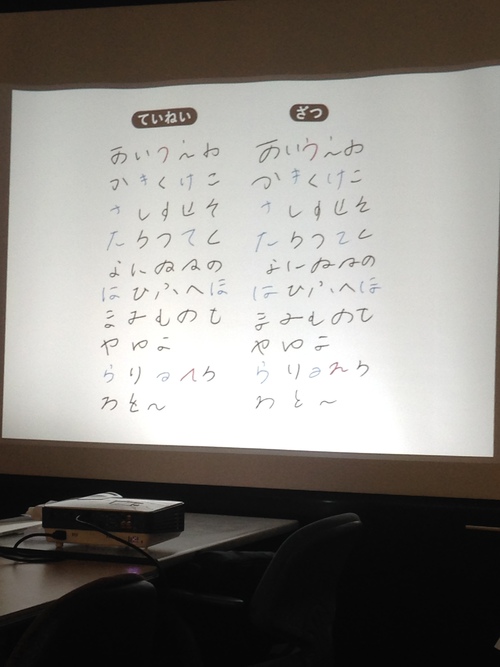 ていねい
あいうえお
かきくけこ
さしすせそ
たちつてと
なにぬねの
はひふへほ
まみむめも
やゆよ
らりるれろ
わをん
ざつ
あいうえお
かきくけこ
さしすせそ
たちつてと
なにぬねの
はひふへほ
まみむめも
やゆよ
らりるれろ
わをん